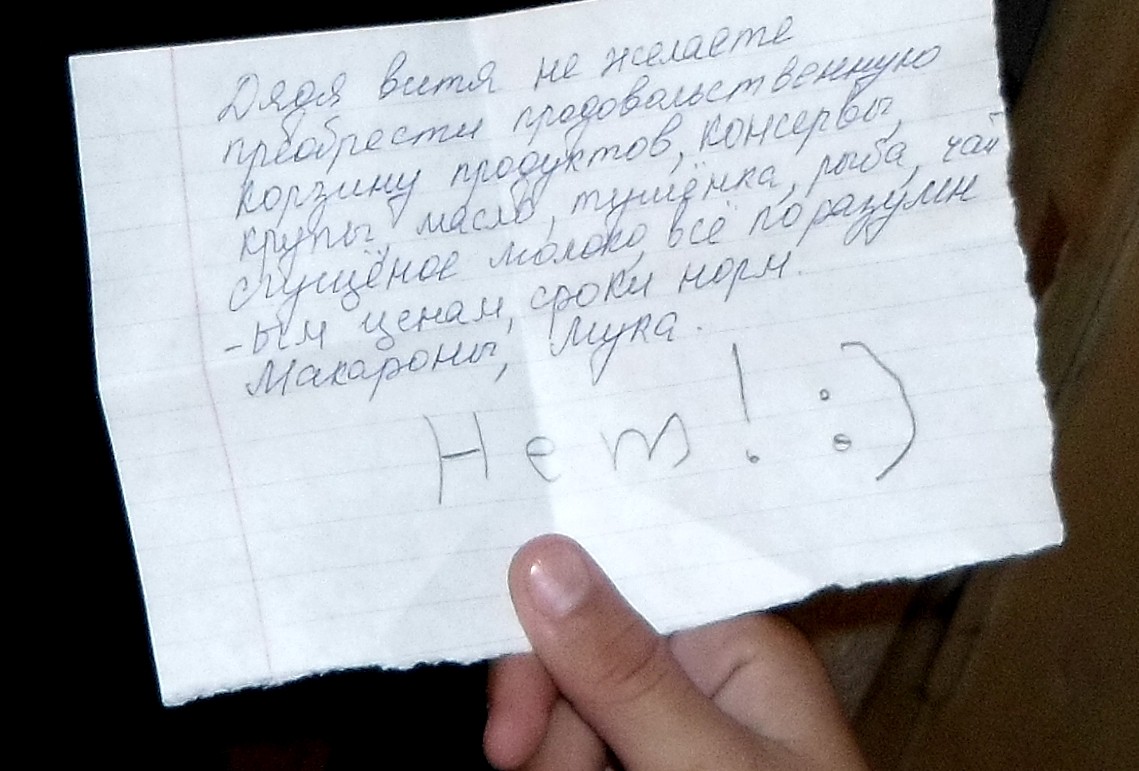 Дядя витя не желаете
преобрести продовольственную
корзину продуктов, консервы,
крупы, масло, тушёнка, рыба, чай
сгущёное молоко, всё по разумн
-ым ценам, сроки норм.
Макароны, мука.
Нет! :)